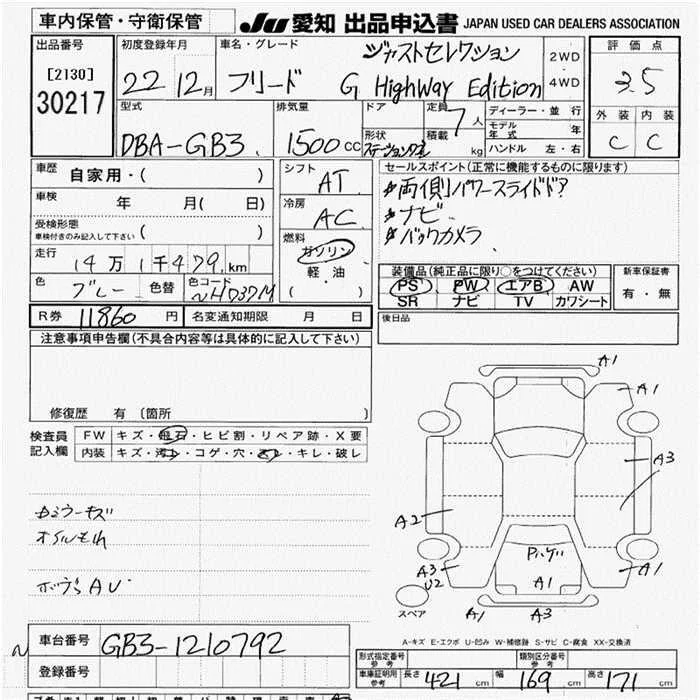 車内保管・守衛保管
JU 愛知 出品申込書 JAPAN USED CAR DEALERS ASSOCIATION
出品番号 [2130] 30217
初度登録年月 22 12月
車名・グレード フリード ジャストセレクション G HighWay Edition
2WD
4WD
評価点 3.5
外装 内装
C C
型式 DBA-GB3
排気量 1500 CC
ドア
形状
定員 7人
積載 kg
ディーラー・並行
モデル年式 年
ハンドル 左・右
車歴 自家用・( )
車検 年 月( 日)
受検形態
車検付きのみ記入して下さい ( )
走行 14万1千479km
色 ブルー 色替 色コード
シフト AT
冷房 AC
燃料 ガソリン
軽・油
( )
セールスポイント(正常に機能するものに限ります)
両側パワースライドドア
ナビ
バックカメラ
装備品(純正品に限り○をつけてください)
PS PW エアB AW
SR ナビ TV カワシート
新車保証書
有・無
R券 11860円 名変通知期限 月 日
後日品
注意事項申告欄(不具合内容等は具体的に記入して下さい)
修復歴 有 〔箇所 〕
検査員記入欄
FW キズ・飛石・ヒビ割・リペア跡・X要
内装 キズ・汚れ・コゲ・穴・スレ・キレ・破レ
オイルモレ
A1
A1
A3
A2
A3
U2
A1
A1
A1
A3
スペア
A-キズ E-エクボ U-凹み W-補修跡 S-サビ C-腐食 XX-交換済
車台番号 GB3-1210792
登録番号
形式指定番号 参考
類別区分番号 参考
車庫証明用 参考 長さ 421 cm 幅 169 cm 高さ 171 cm